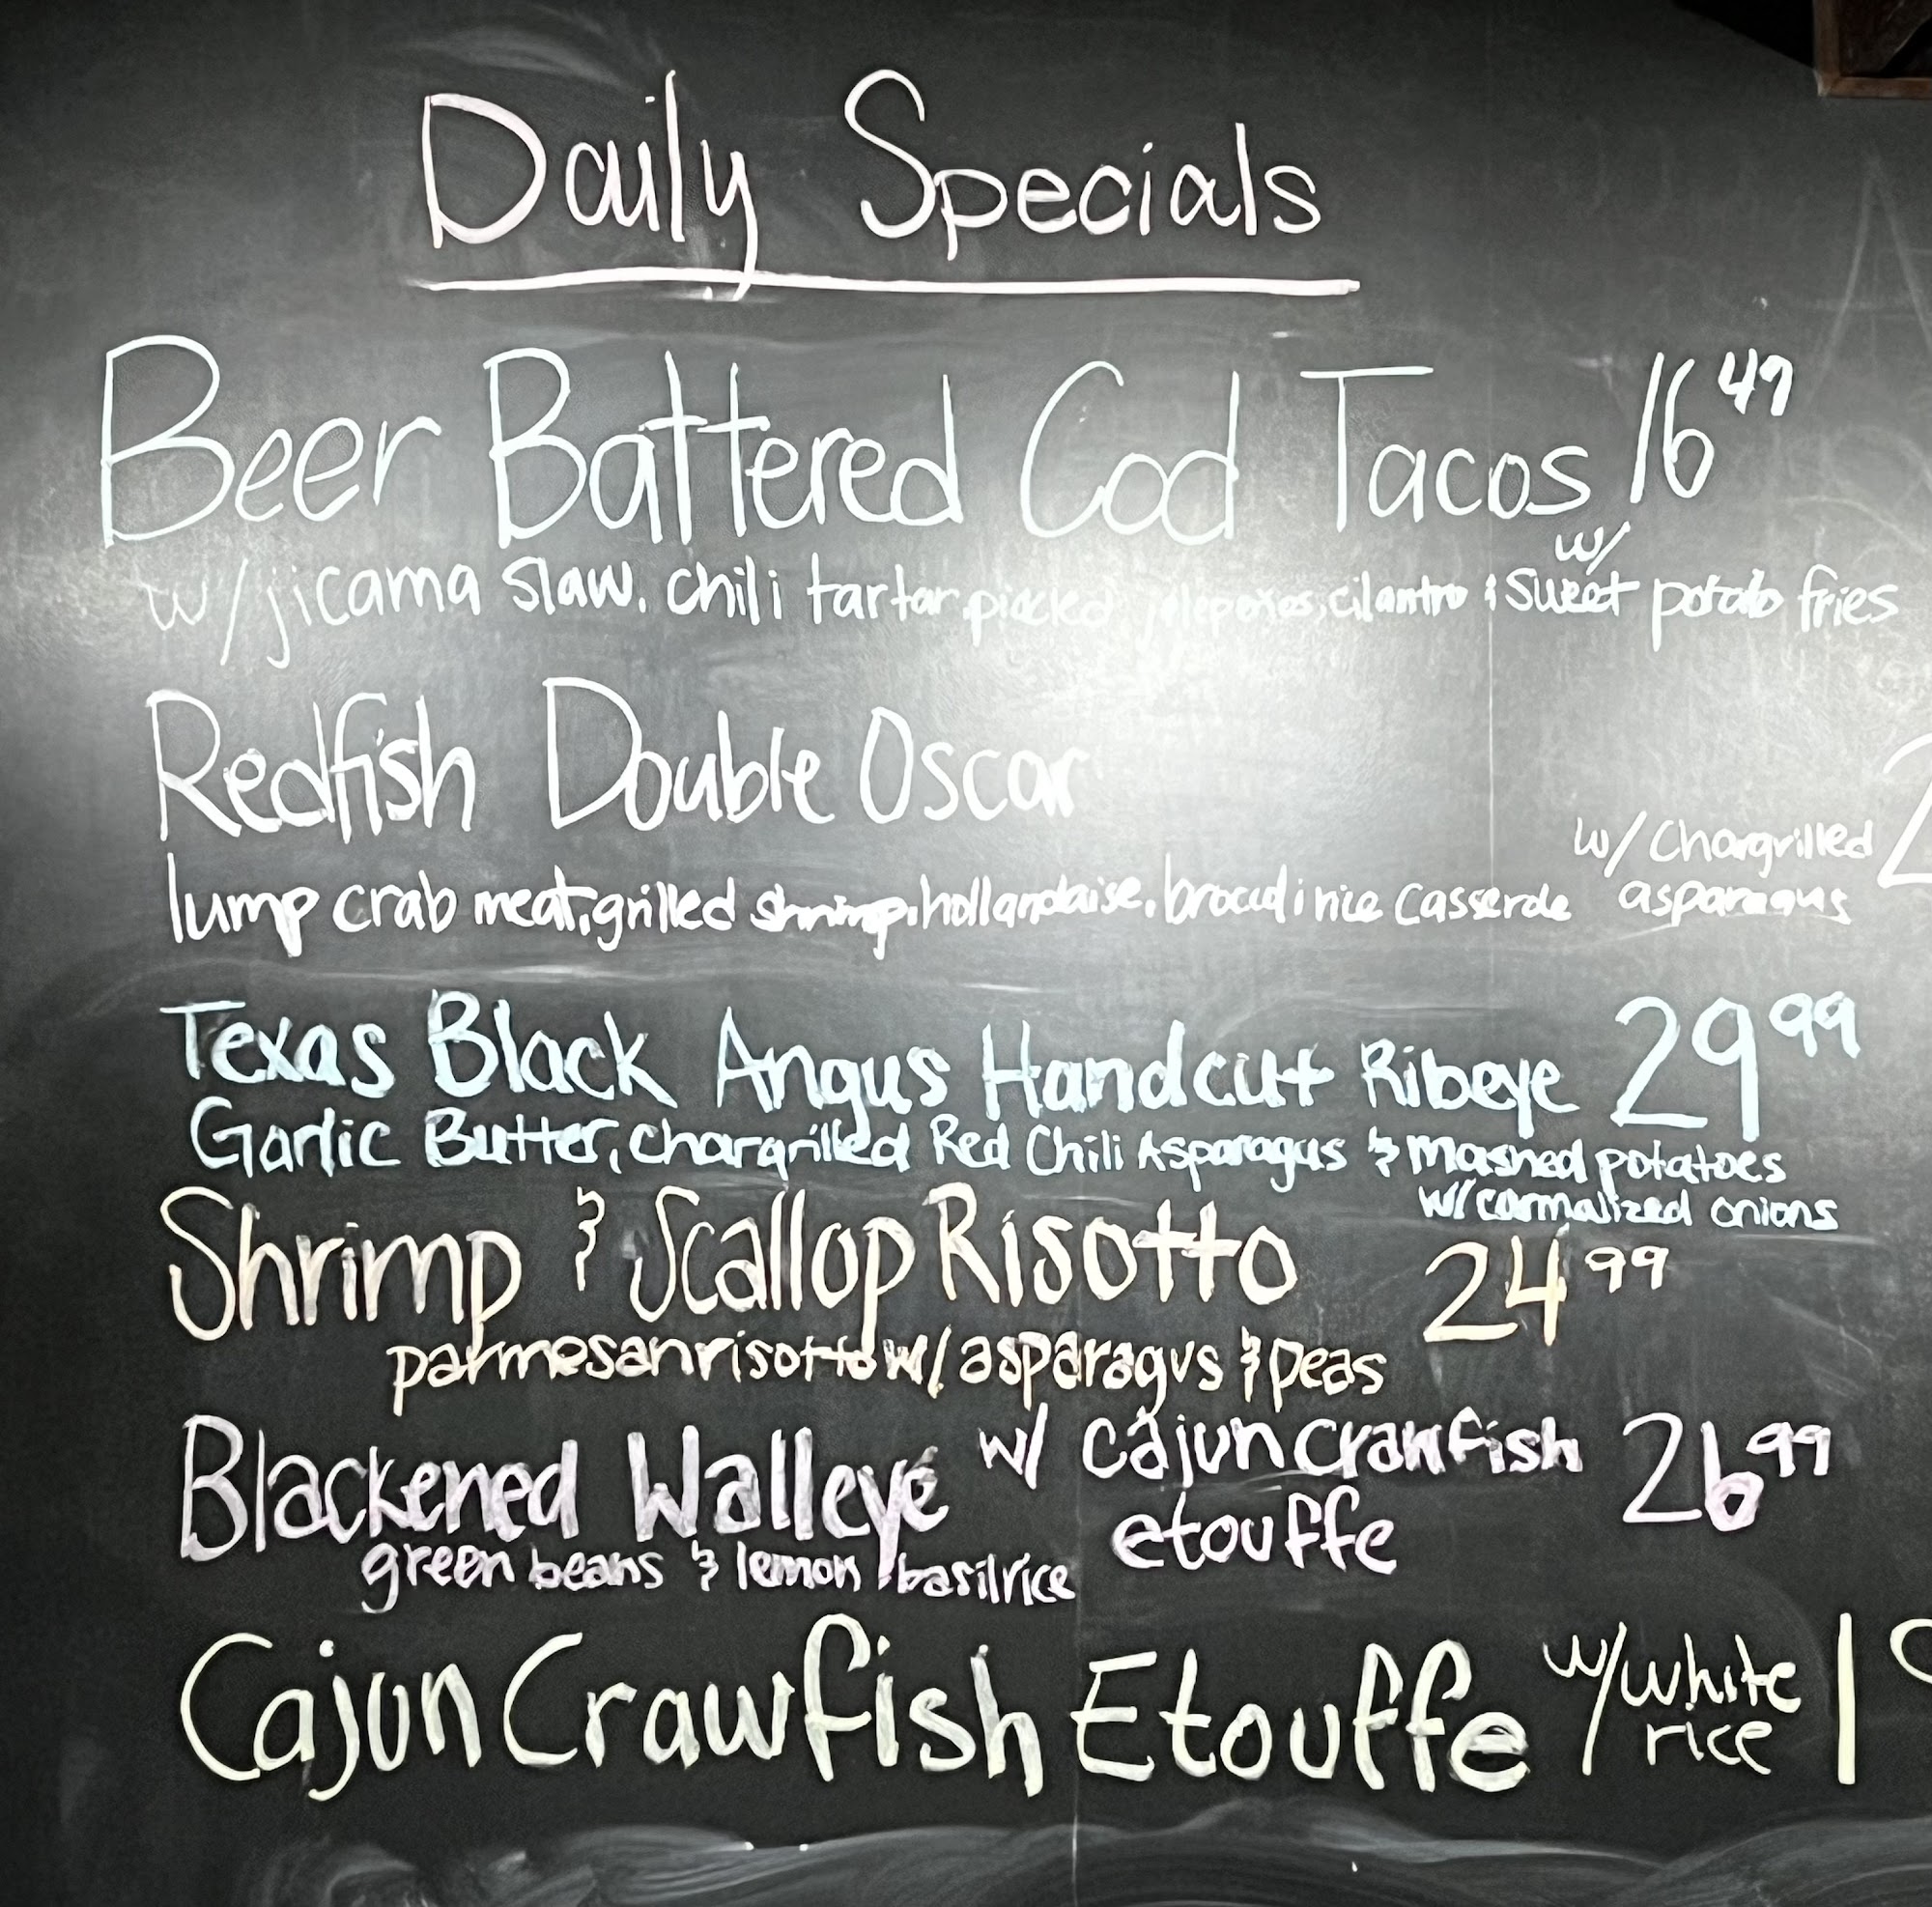 Daily Specials
Beer Battered Cod Tacos 16 49
w/
w/jicama slaw, chili tartar, pickled jalepenos, cilantro & sweet potato fries
Redfish Double Oscar
w/ Chargrilled 2
lump crab meat, grilled shrimp, hollandaise, rice Casserole asparagus
Texas Black Angus Handcut Ribeye 29 99
Garlic Butter, Chargrilled Red Chili Asparagus & mashed potatoes
w/carmalized onions
Shrimp & Scallop Risotto 24 99
parmesan risotto w/ asparagus & peas
Blackened Walleye w/ cajun crawfish 26 99
etouffe
green beans & lemon basil rice
Cajun Crawfish Etouffe w/white 1
rice